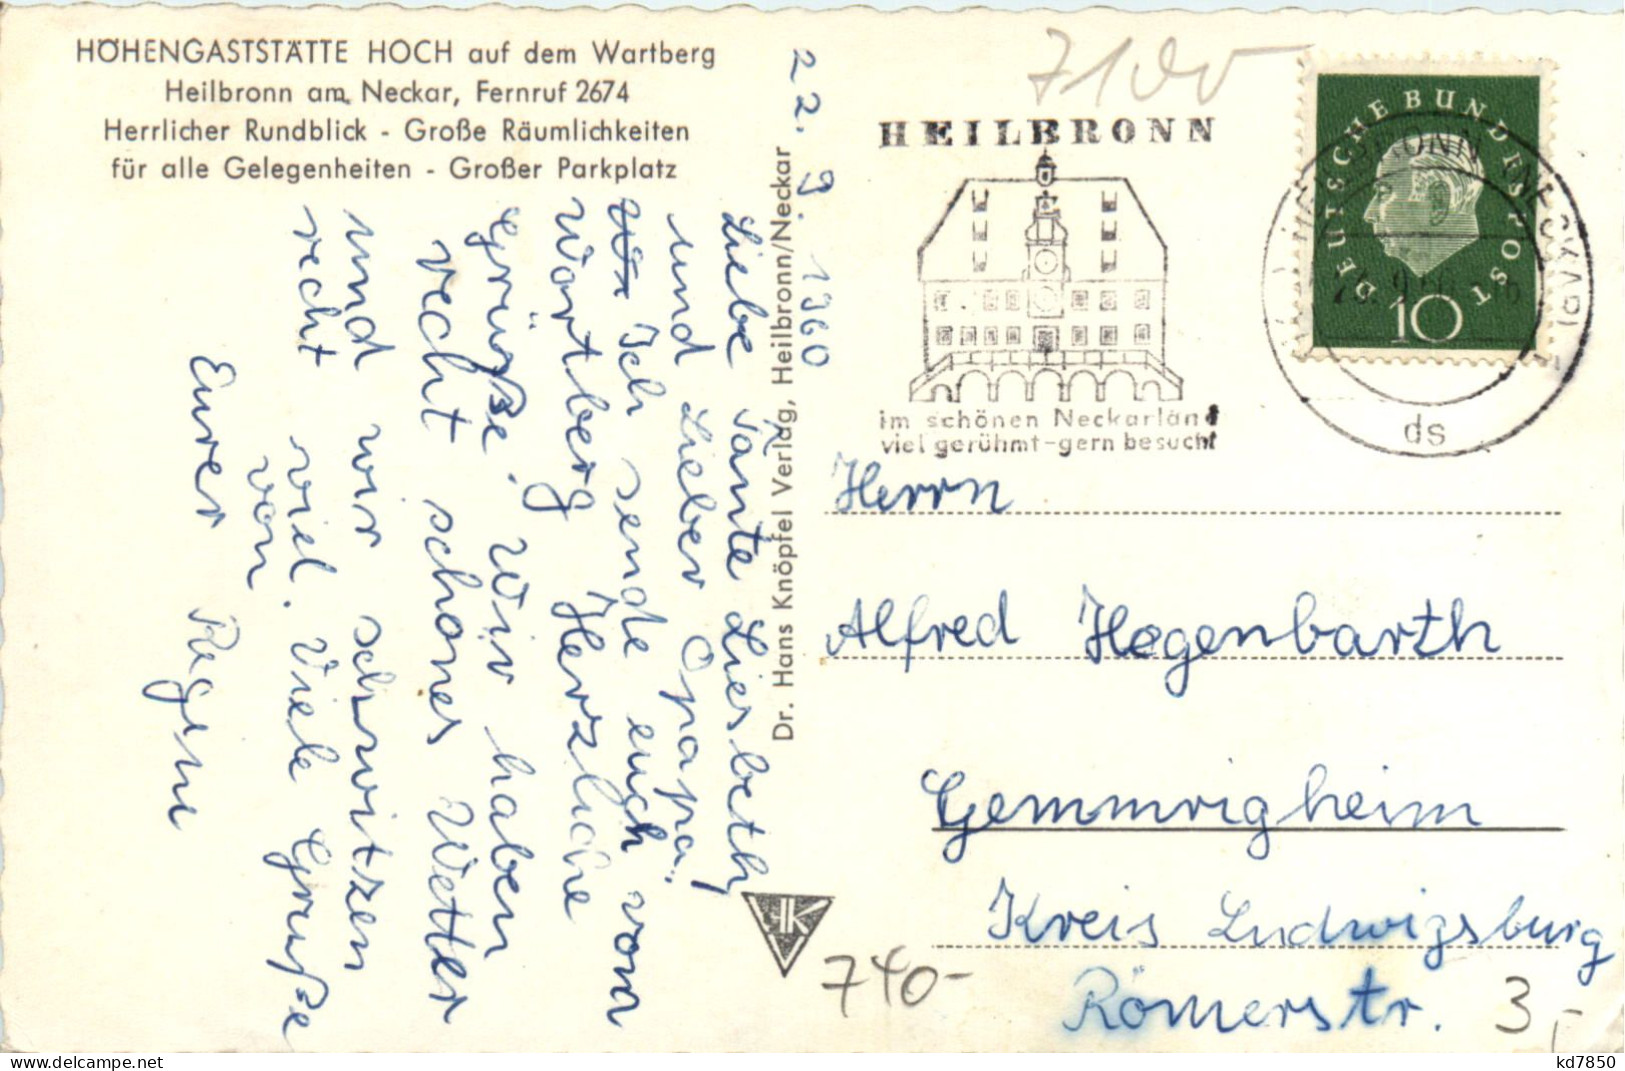 HÖHENGASTSTÄTTE HOCH auf dem Wartberg
Heilbronn am Neckar, Fernruf 2674
Herrlicher Rundblick - Große Räumlichkeiten
für alle Gelegenheiten - Großer Parkplatz
22. 9. 1960
Liebe Tante Liesbeth,
und Lieber Opapa!
Ich sende euch vom
Wartberg Herzliche
Grüße. Wir haben
recht schones Wetter
und wir schwitzen
recht viel. Viele Grüße
von
Eurer Regine
Dr. Hans Knöpfel Verlag, Heilbronn/Neckar
HK
7100
HEILBRONN
im schönen Neckarland
viel gerühmt-gern besucht
DEUTSCHE BUNDESPOST
10
ds
Herrn
Alfred Hegenbarth
Gemmrigheim
Kreis Ludwigsburg
Römerstr.
740-
3,-
kd7850